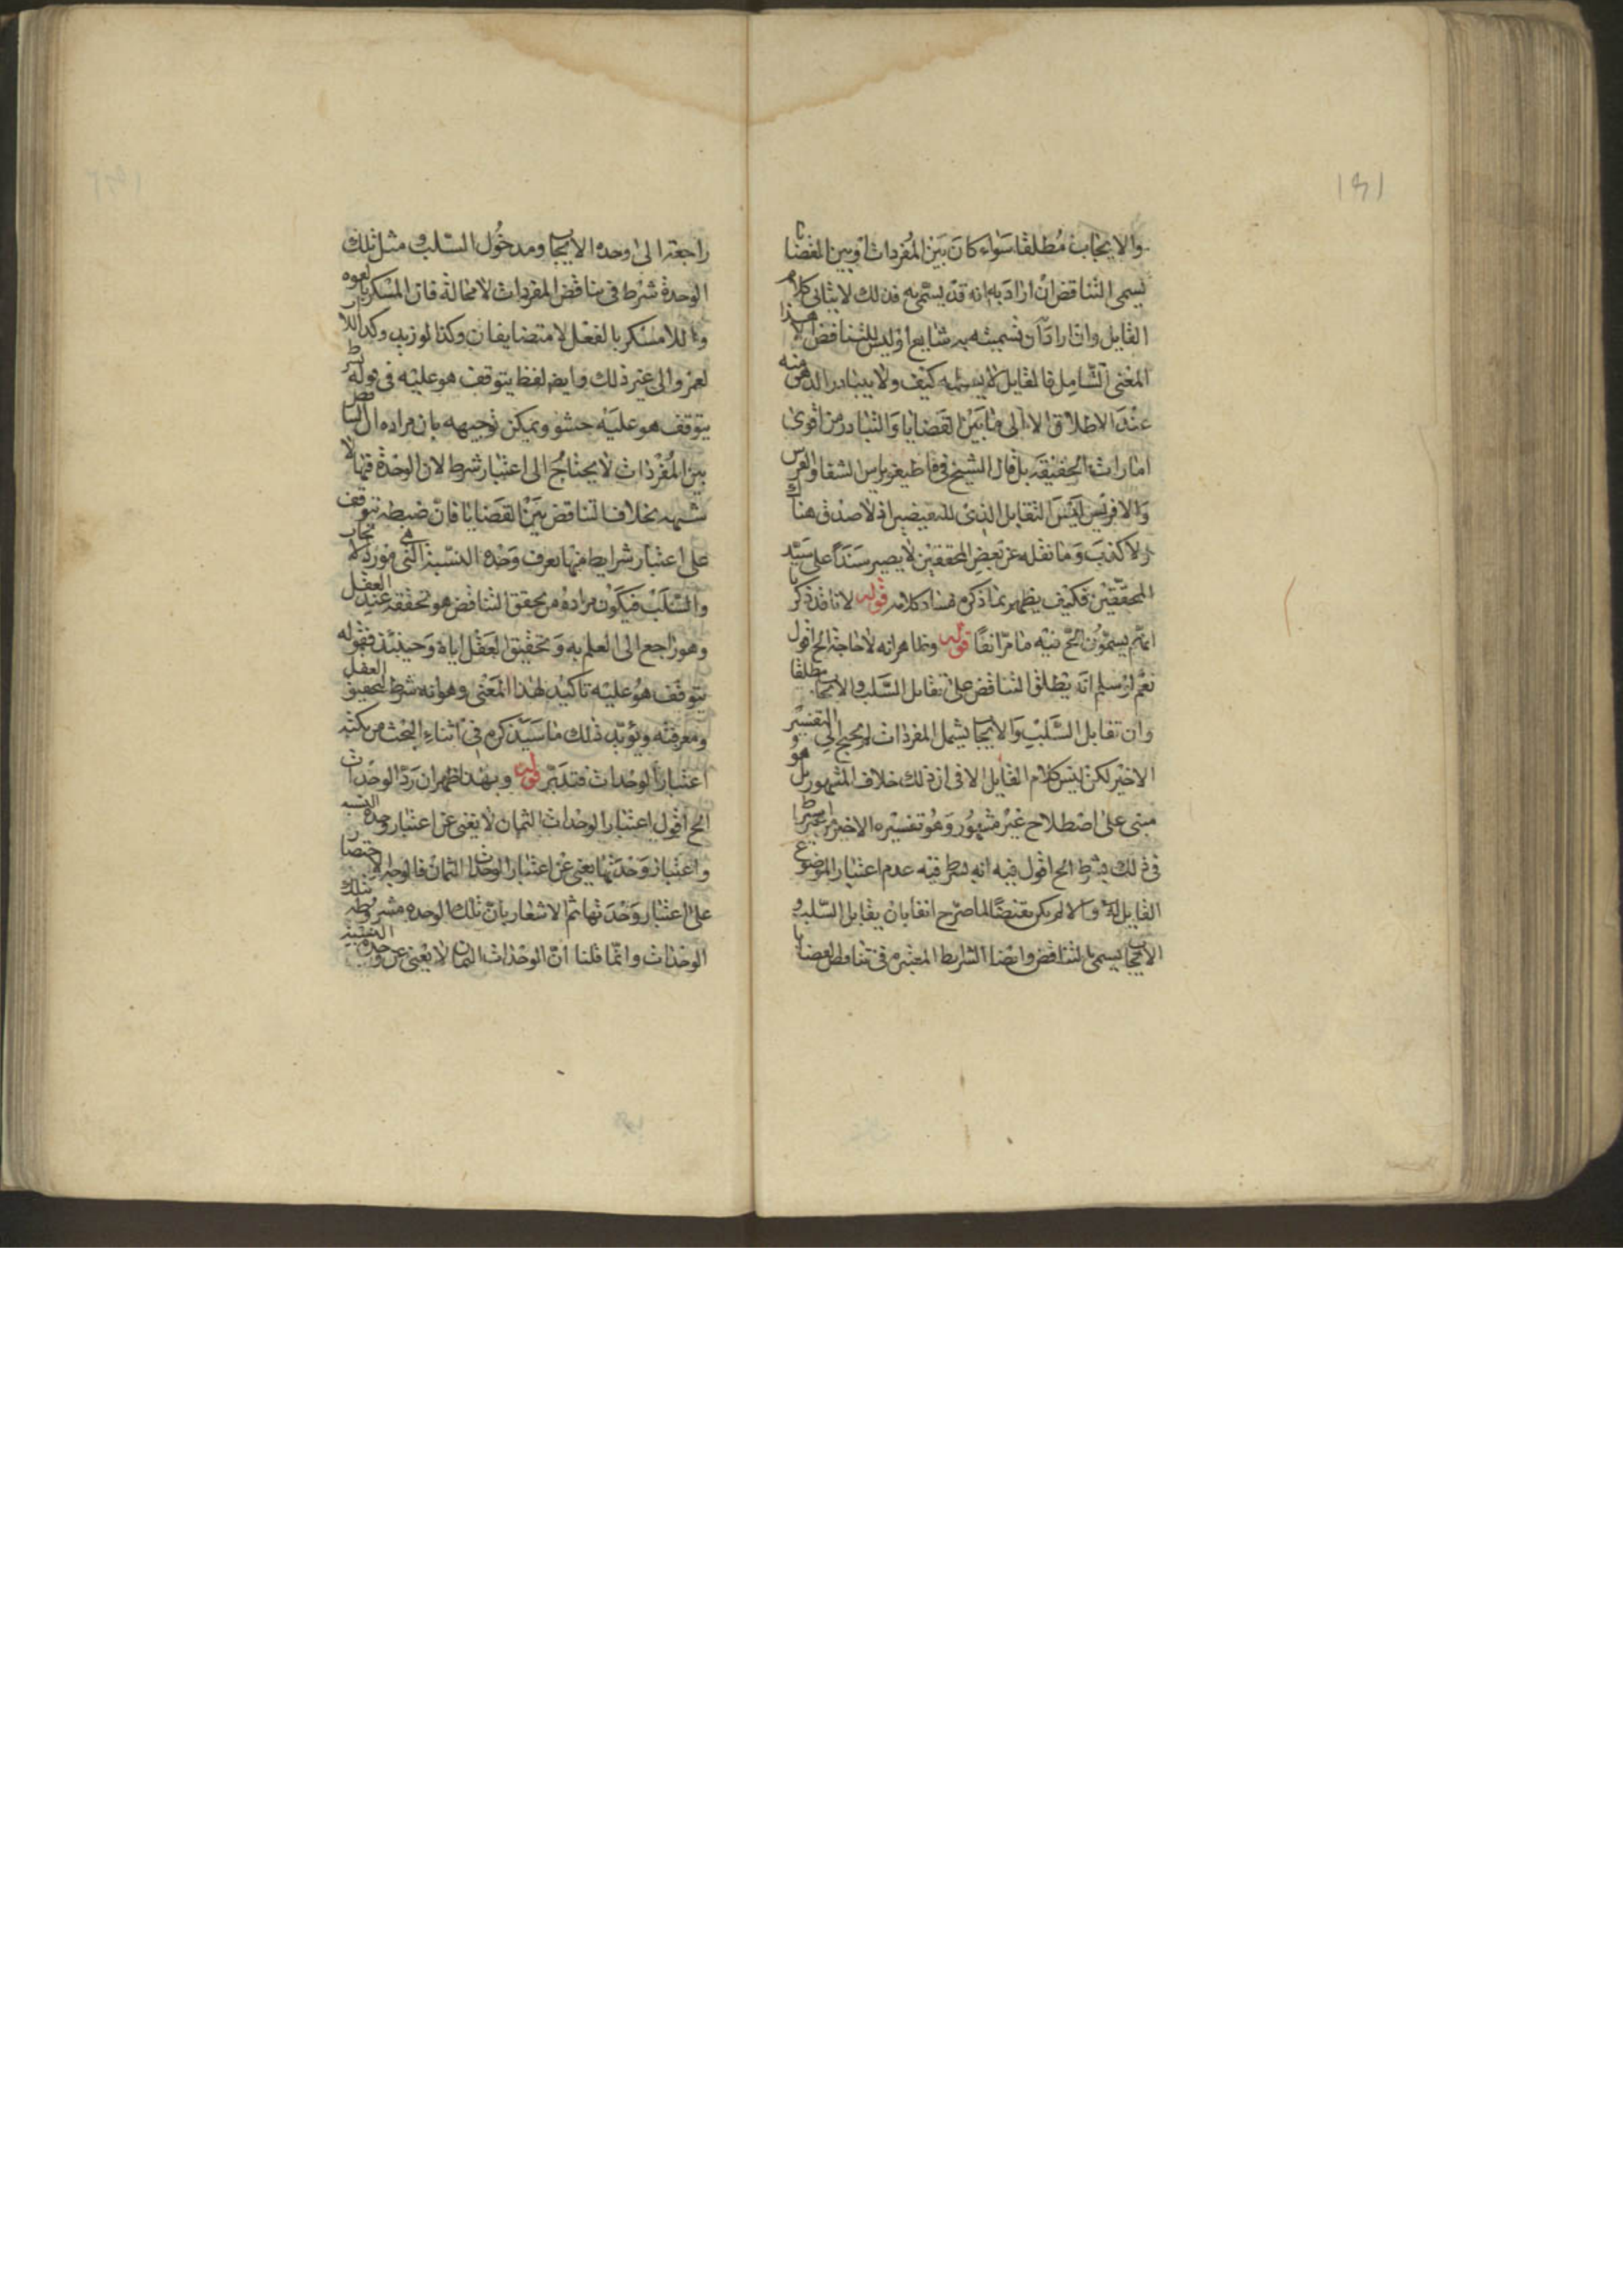 ١٩١
والايجاب مطلقا سواء كان بين المفردات او بين القضايا
يسمى التناقض ان اراد به انه قد يسمى به فذلك لا ينافي كلام
القايل وان اراد ان تسميته به شايع او ليس للتناقض الا هذا
المعنى الشامل فالقايل لا يسلمه كيف ولا يتبادر الذهن منه
عند الاطلاق الا الى ما بين القضايا والتبادر من اقوى
امارات الحقيقة بل قال الشيخ في قاطيغورياس الشفا والفرس
واللافرس ليس التقابل الذي للنقيضين اذ لا صدق هناك
ولا كذب وما نقله عن بعض المحققين لا يصير سندا على سيد
المحققين فكيف يظهر بما ذكره فساد كلامه قوله لانا قد ذكرنا
انهم يسمون الخ فيه ما مر انفا قوله وظاهر انه لا حاجة الخ اقول
نعم لو سلم انه يطلق التناقض على تقابل السلب والايجاب مطلقا
وان تقابل السلب والايجاب يشمل المفردات لم يحتج الى التفسير
الاخير لكن ليس كلام القايل الا في ان ذلك خلاف المشهور بل هو
مبنى على اصطلاح غير مشهور وهو تفسيره الاخير
في ذلك بشرط الخ اقول فيه انه شرط فيه عدم اعتبار الموضوع
القابل له والا لم يكن نقيضا لما صرح انفا بان تقابل السلب و
الايجاب يسمى بالتناقض وايضا الشرايط المعتبره في تناقض القضايا
راجعة الى وحدة الايجاب ومدخول السلب و مثل تلك
الوحدة شرط في تناقض المفردات لا محالة فان المسكر بالقوه
واللامسكر بالفعل لا متضايفان وكذا لو زيد وكذا اللا اب
لعمرو الى غير ذلك وايضا لفظ يتوقف هو عليه في قوله شرط
يتوقف هو عليه حشو ويمكن توجيهه بان مراده ان التناقض
بين المفردات لا يحتاج الى اعتبار شرط لان الوحدة فيها لا
شبهه بخلاف التناقض بين القضايا فان ضبطه يتوقف
على اعتبار شرايط منها يعرف وحدة النسبة التي هي مورد الايجاب
والسلب فيكون مراده من تحقق التناقض هو تحققه عند العقل
وهو راجع الى العلم به و تحقيق العقل اياه وحينئذ فقوله
يتوقف هو عليه تاكيد لهذا المعنى وهو انه شرط لتحقيق العقل
ومعرفته ويؤيد ذلك ما سيذكره في اثناء البحث من
اعتبار الوحدات فتدبر قوله وبهذا ظهر ان رد الوحدات
الخ اقول اعتبار الوحدات الثمان لا يغنى عن اعتبار وحدة النسبه
واعتبار وحدتها يغنى عن اعتبار الوحدات الثمان فالوجه الاختصار
على اعتبار وحدتها ثم الاشعار بان تلك الوحده مشروطه بتلك
الوحدات وانما قلنا ان الوحدات الثمان لا يغنى عن وحدة النسبة